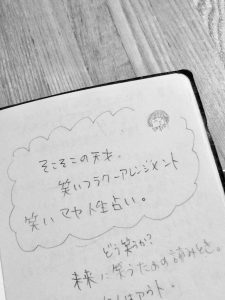 そこそこの天才。
笑いフラワーアレンジメント
笑いマヤ人生占い。
どう笑うか?
未来に笑うための読みとき。
はアウト。